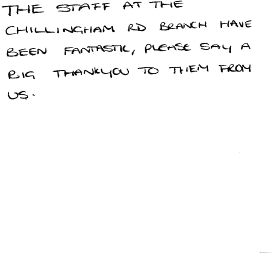 THE STAFF AT THE
CHILLINGHAM RD BRANCH HAVE
BEEN FANTASTIC, PLEASE SAY A
BIG THANKYOU TO THEM FROM
US.